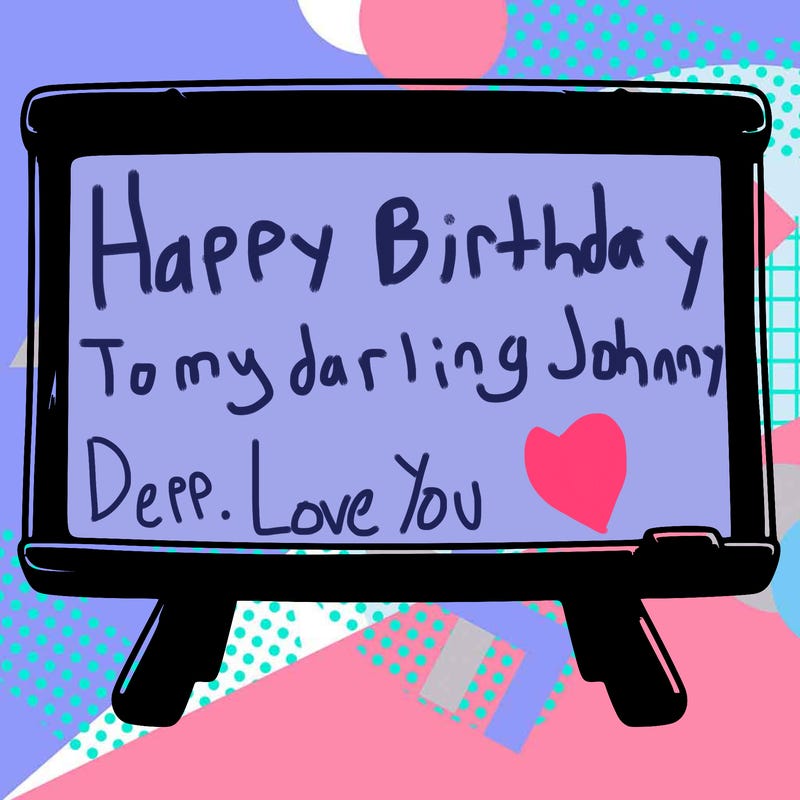 Happy Birthday
To my darling Johnny
Depp. Love You